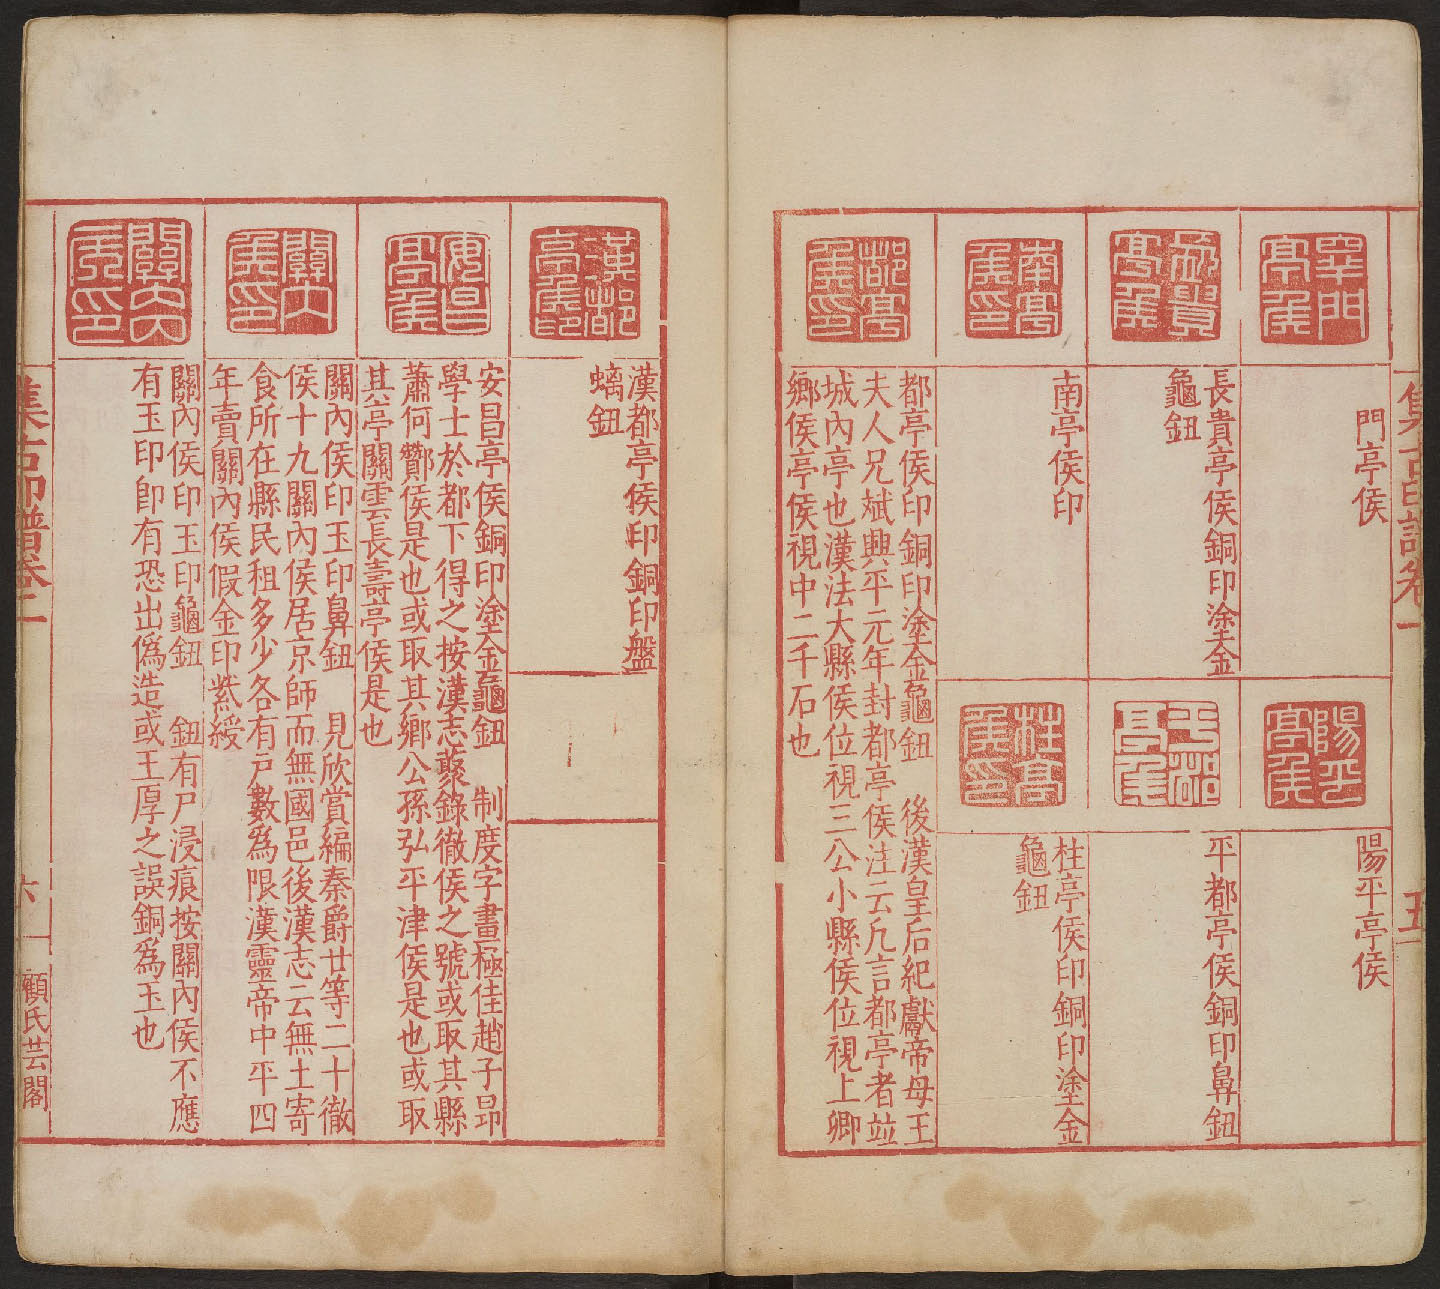 集古印譜卷
五
門亭侯
門亭侯
陽平亭侯
陽平亭侯
長貴亭侯
長貴亭侯銅印塗金
龜鈕
平都亭侯
平都亭侯銅印鼻鈕
南亭侯印
南亭侯印
杜亭侯印
杜亭侯印銅印塗金
龜鈕
都亭侯印
都亭侯印銅印塗金龜鈕 後漢皇后紀獻帝母王
夫人兄斌興平元年封都亭侯注云凡言都亭者竝
城內亭也漢法大縣侯位視三公小縣侯位視上卿
鄉侯亭侯視中二千石也
漢都亭侯印
漢都亭侯印銅印盤
螭鈕
安昌亭侯
安昌亭侯銅印塗金龜鈕 制度字畫極佳趙子昂
學士於都下得之按漢志聚錄徹侯之號或取其縣
蕭何酇侯是也或取其鄉公孫弘平津侯是也或取
其亭關雲長壽亭侯是也
關內侯印
關內侯印玉印鼻鈕 見欣賞編秦爵廿等二十徹
侯十九關內侯居京師而無國邑後漢志云無土寄
食所在縣民租多少各有戶數爲限漢靈帝中平四
年賣關內侯假金印紫綬
關內侯印
關內侯印玉印龜鈕 鈕有尸浸痕按關內侯不應
有玉印卽有恐出僞造或王厚之誤銅爲玉也
集古印譜卷二
六
顧氏芸閣